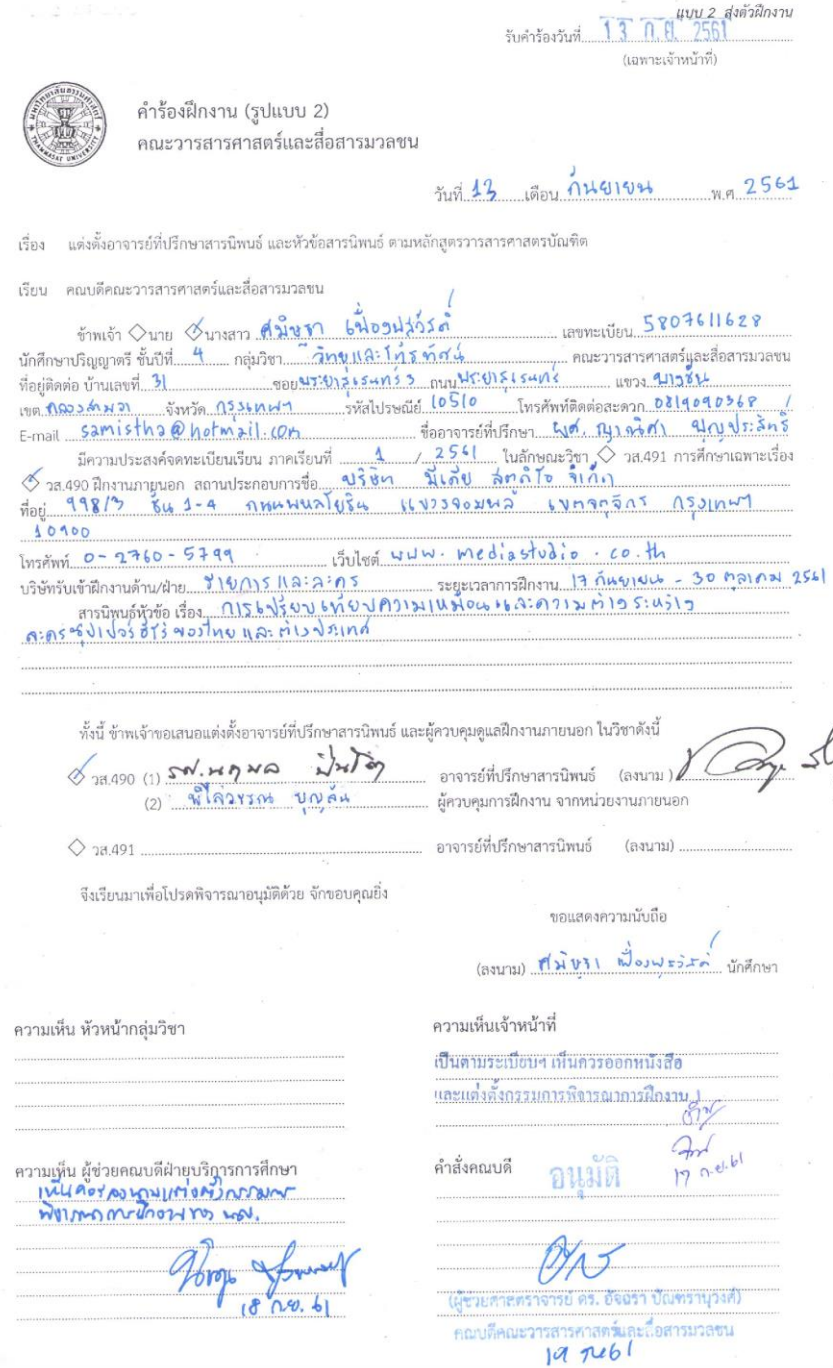 แบบ 2 ส่งตัวฝึกงาน
รับคำร้องวันที่ 13 ก.ย. 2561
(เฉพาะเจ้าหน้าที่)
มหาวิทยาลัยธรรมศาสตร์
THAMMASAT UNIVERSITY
คำร้องฝึกงาน (รูปแบบ 2)
คณะวารสารศาสตร์และสื่อสารมวลชน
วันที่ 13 เดือน กันยายน พ.ศ. 2561
เรื่อง แต่งตั้งอาจารย์ที่ปรึกษาสารนิพนธ์ และหัวข้อสารนิพนธ์ ตามหลักสูตรวารสารศาสตรบัณฑิต
เรียน คณบดีคณะวารสารศาสตร์และสื่อสารมวลชน
ข้าพเจ้า นาย นางสาว ศมิษฐา เลขทะเบียน 5807611628
นักศึกษาปริญญาตรี ชั้นปีที่ 4 กลุ่มวิชา วิทยุและโทรทัศน์ คณะวารสารศาสตร์และสื่อสารมวลชน
ที่อยู่ติดต่อ บ้านเลขที่ 31 ซอย พระยาสุเรนทร์ 3 ถนน พระยาสุเรนทร์ แขวง บางชัน
เขต คลองสามวา จังหวัด กรุงเทพฯ รหัสไปรษณีย์ 10510 โทรศัพท์ติดต่อสะดวก 0819090368
E-mail samistha@hotmail.com ชื่ออาจารย์ที่ปรึกษา ผศ. ญาณิศา บุญประสิทธิ์
มีความประสงค์จดทะเบียนเรียน ภาคเรียนที่ 1 / 2561 ในลักษณะวิชา วส.491 การศึกษาเฉพาะเรื่อง
วส.490 ฝึกงานภายนอก สถานประกอบการชื่อ บริษัท มีเดีย สตูดิโอ จำกัด
ที่อยู่ 998/3 ชั้น 1-4 ถนนพหลโยธิน แขวงจอมพล เขตจตุจักร กรุงเทพฯ
10900
โทรศัพท์ 0-2760-5799 เว็บไซต์ www.mediastudio.co.th
บริษัทรับเข้าฝึกงานด้าน/ฝ่าย รายการและละคร ระยะเวลาการฝึกงาน 17 กันยายน - 30 ตุลาคม 2561
สารนิพนธ์หัวข้อ เรื่อง การเปรียบเทียบความเหมือนและความต่างระหว่าง
ละครซุปเปอร์ฮีโร่ของไทยและต่างประเทศ
ทั้งนี้ ข้าพเจ้าขอเสนอแต่งตั้งอาจารย์ที่ปรึกษาสารนิพนธ์ และผู้ควบคุมดูแลฝึกงานภายนอก ในวิชาดังนี้
วส.490 (1) รศ. อาจารย์ที่ปรึกษาสารนิพนธ์ (ลงนาม)
(2) พิไลวรรณ บุญล้น ผู้ควบคุมการฝึกงาน จากหน่วยงานภายนอก
วส.491 อาจารย์ที่ปรึกษาสารนิพนธ์ (ลงนาม)
จึงเรียนมาเพื่อโปรดพิจารณาอนุมัติด้วย จักขอบคุณยิ่ง
ขอแสดงความนับถือ
(ลงนาม) ศมิษฐา นักศึกษา
ความเห็น หัวหน้ากลุ่มวิชา
ความเห็นเจ้าหน้าที่
เป็นตามระเบียบฯ เห็นควรออกหนังสือ
และแต่งตั้งกรรมการพิจารณาการฝึกงาน
17 ก.ย. 61
ความเห็น ผู้ช่วยคณบดีฝ่ายบริการการศึกษา
18 ก.ย. 61
คำสั่งคณบดี
อนุมัติ
(ผู้ช่วยศาสตราจารย์ ดร. อัจฉรา ปัณฑรานุวงศ์)
คณบดีคณะวารสารศาสตร์และสื่อสารมวลชน